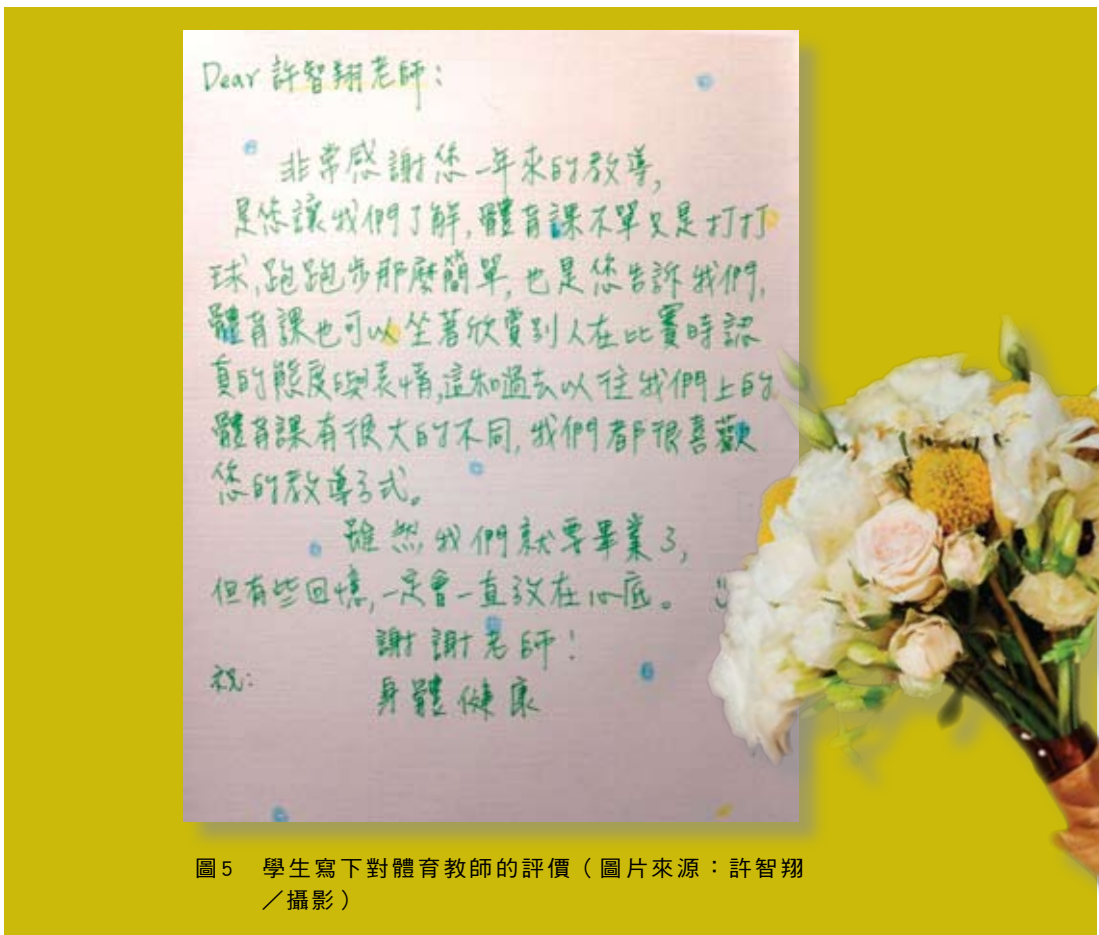 Dear 許智翔老師：
非常感謝您一年來的教導,
是您讓我們了解,體育課不單只是打打
球,跑跑步那麼簡單,也是您告訴我們,
體育課也可以坐著欣賞別人在比賽時認
真的態度與表情,這和過去以往我們上的
體育課有很大的不同,我們都很喜歡
您的教導方式。
雖然我們就要畢業了,
但有些回憶,一定會一直放在心底。
謝謝老師！
祝：
身體健康
圖5 學生寫下對體育教師的評價（圖片來源：許智翔
／攝影）